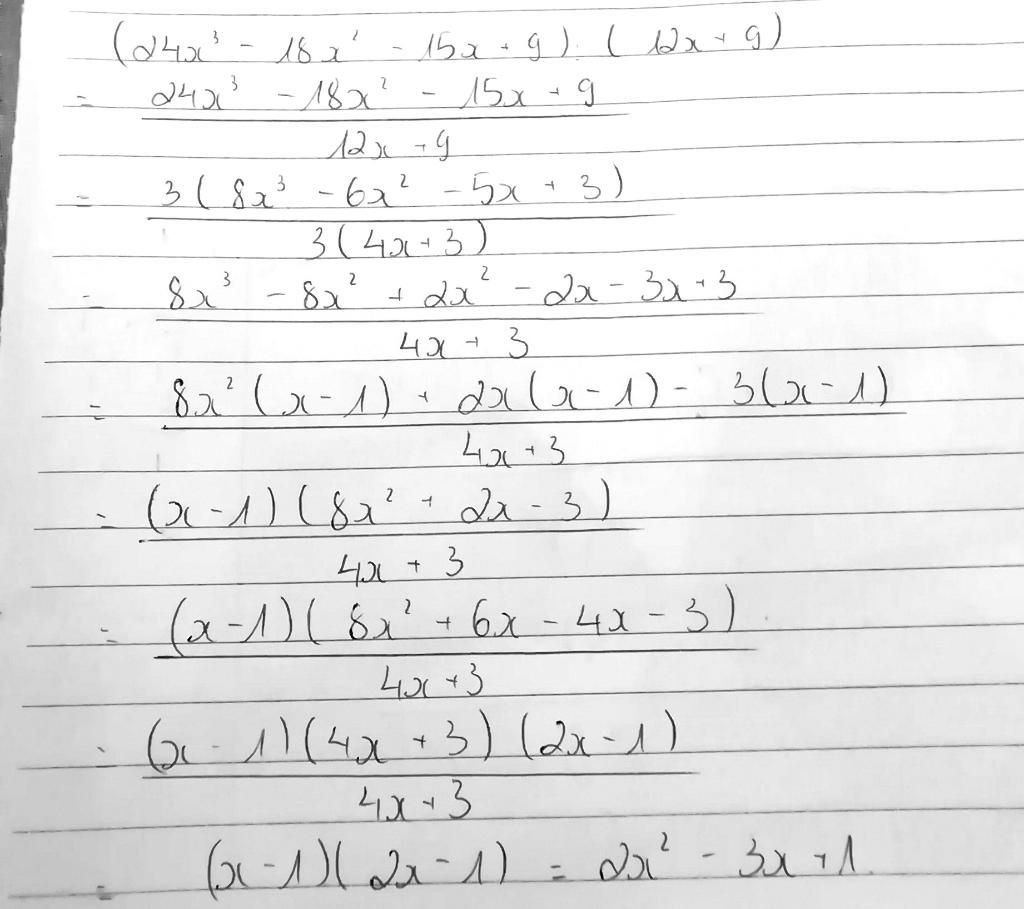 (24x³ - 18x² - 15x + 9) : (12x + 9)
= \frac{24x³ - 18x² - 15x + 9}{12x + 9}
= \frac{3(8x³ - 6x² - 5x + 3)}{3(4x + 3)}
= \frac{8x³ - 8x² + 2x² - 2x - 3x + 3}{4x + 3}
= \frac{8x²(x - 1) + 2x(x - 1) - 3(x - 1)}{4x + 3}
= \frac{(x - 1)(8x² + 2x - 3)}{4x + 3}
= \frac{(x - 1)(8x² + 6x - 4x - 3)}{4x + 3}
= \frac{(x - 1)(4x + 3)(2x - 1)}{4x + 3}
= (x - 1)(2x - 1) = 2x² - 3x + 1.